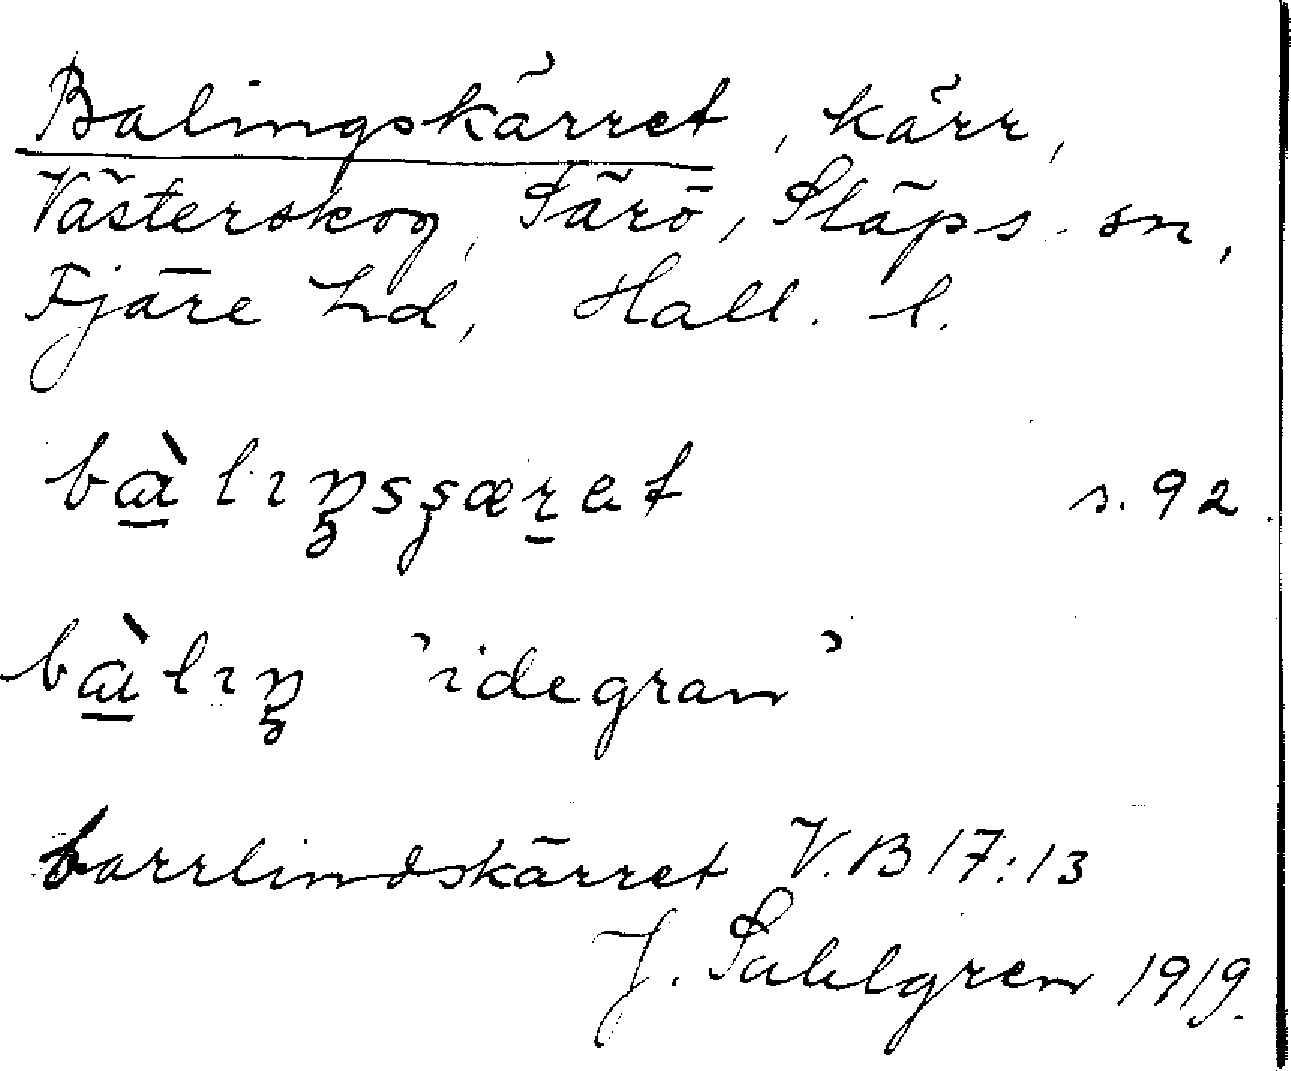 Balingskärret, kärr,
Västerskog, Särö, Släps sn,
Fjäre hd, Hall. l.
bɑ̀lıŋsşæret s. 92.
bɑ̀lıŋ 'idegran'
barrlindskärret V.B 17:13
J. Sahlgren 1919.